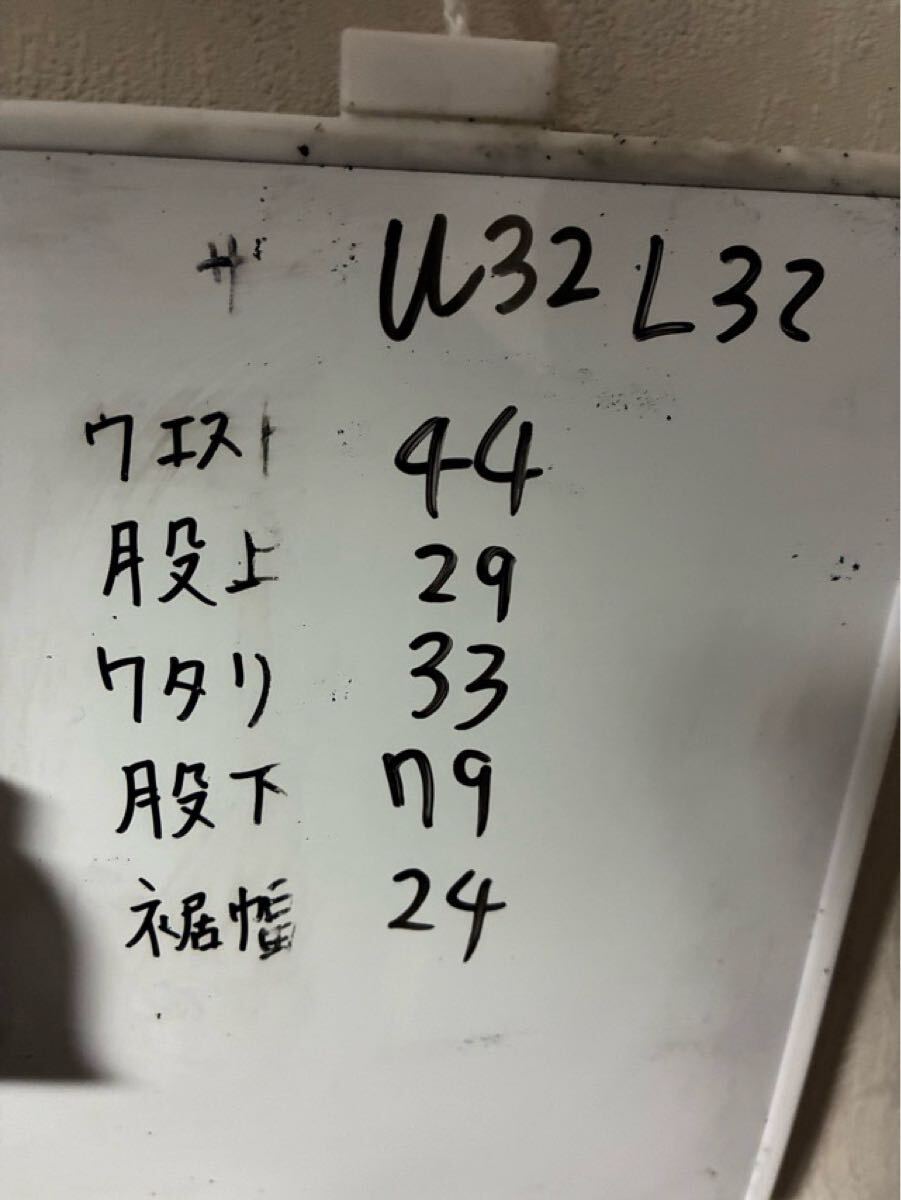 サ W32 L32
ウエスト 44
股上 29
ワタリ 33
股下 79
裾幅 24